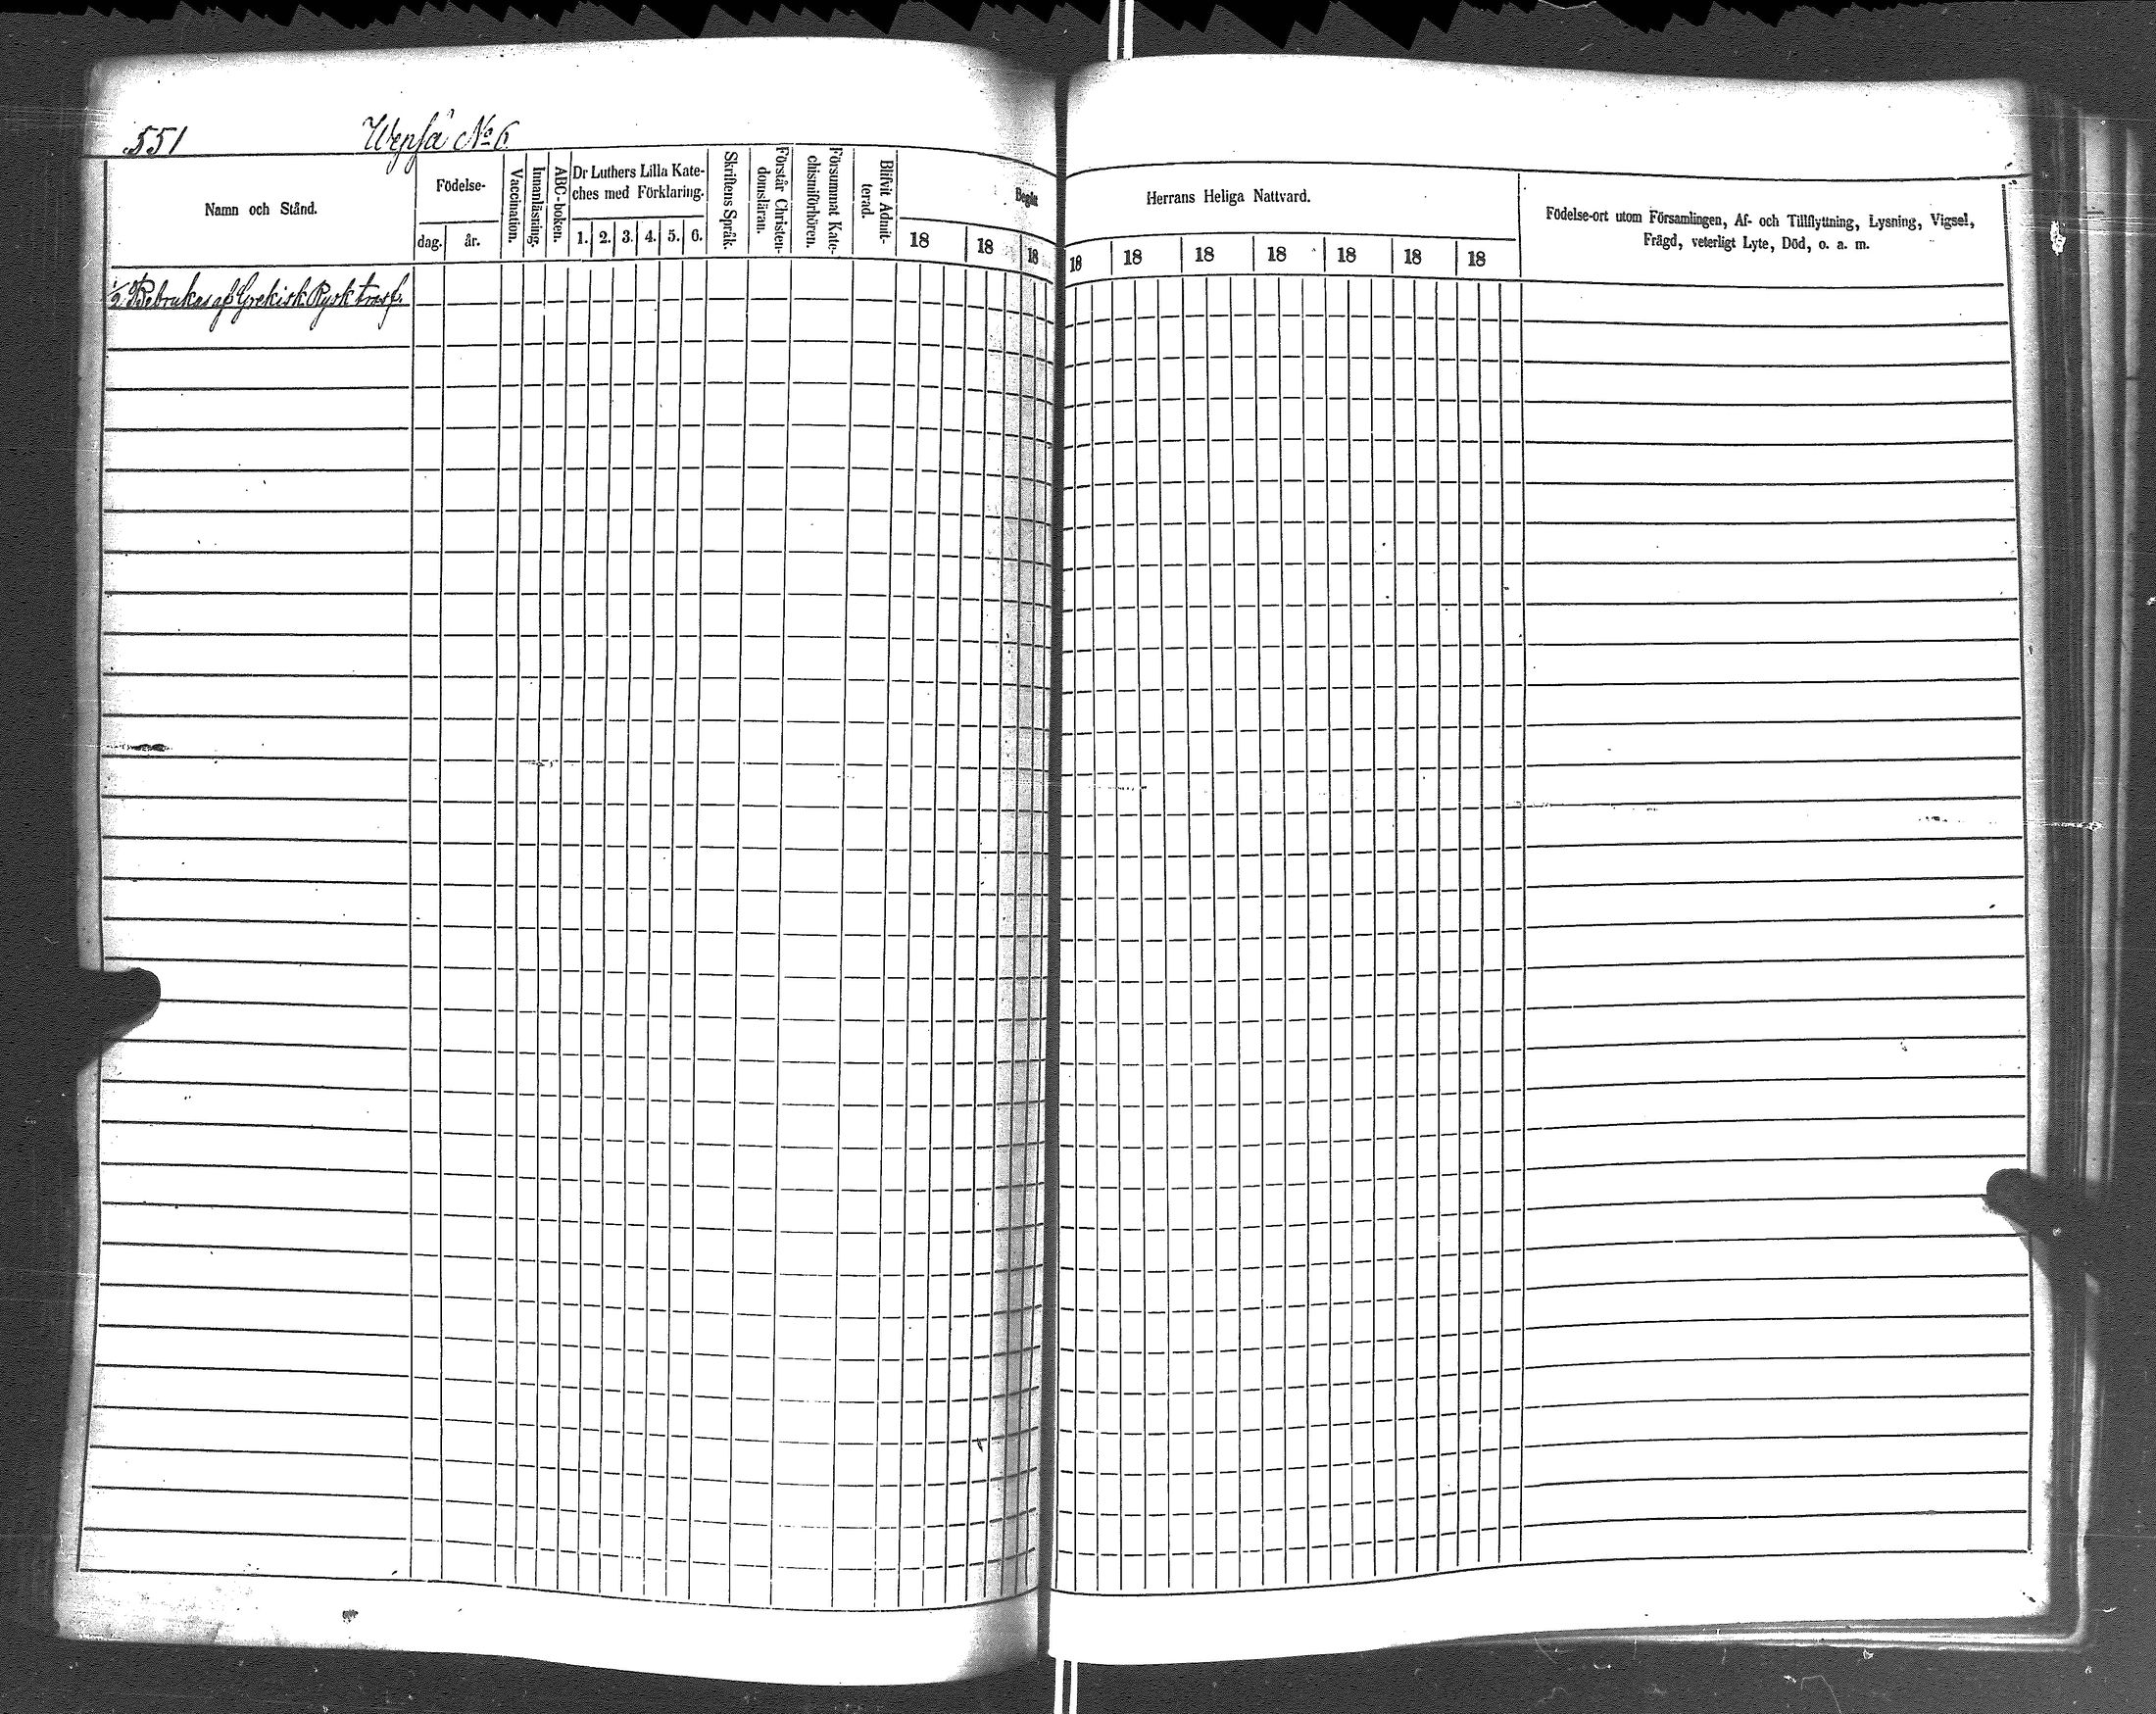 551
Wepsä No 6
Namn och Stånd.
Födelse-
dag.
år.
Vaccination.
Innanläsning.
ABC-boken.
Dr Luthers Lilla Kate-
ches med Förklaring.
1. 2. 3. 4. 5. 6.
Skriftens Språk.
Förstår Christen-
domsläran.
Försummat Kate-
chismiförhören.
Blifvit Admit-
terad.
Begått
18 18 18
Herrans Heliga Nattvard.
18 18 18 18 18 18 18
Födelse-ort utom Församlingen, Af- och Tillflyttning, Lysning, Vigsel,
Frägd, veterligt Lyte, Död, o. a. m.
1/2 Brukas af Grekisk Rysk